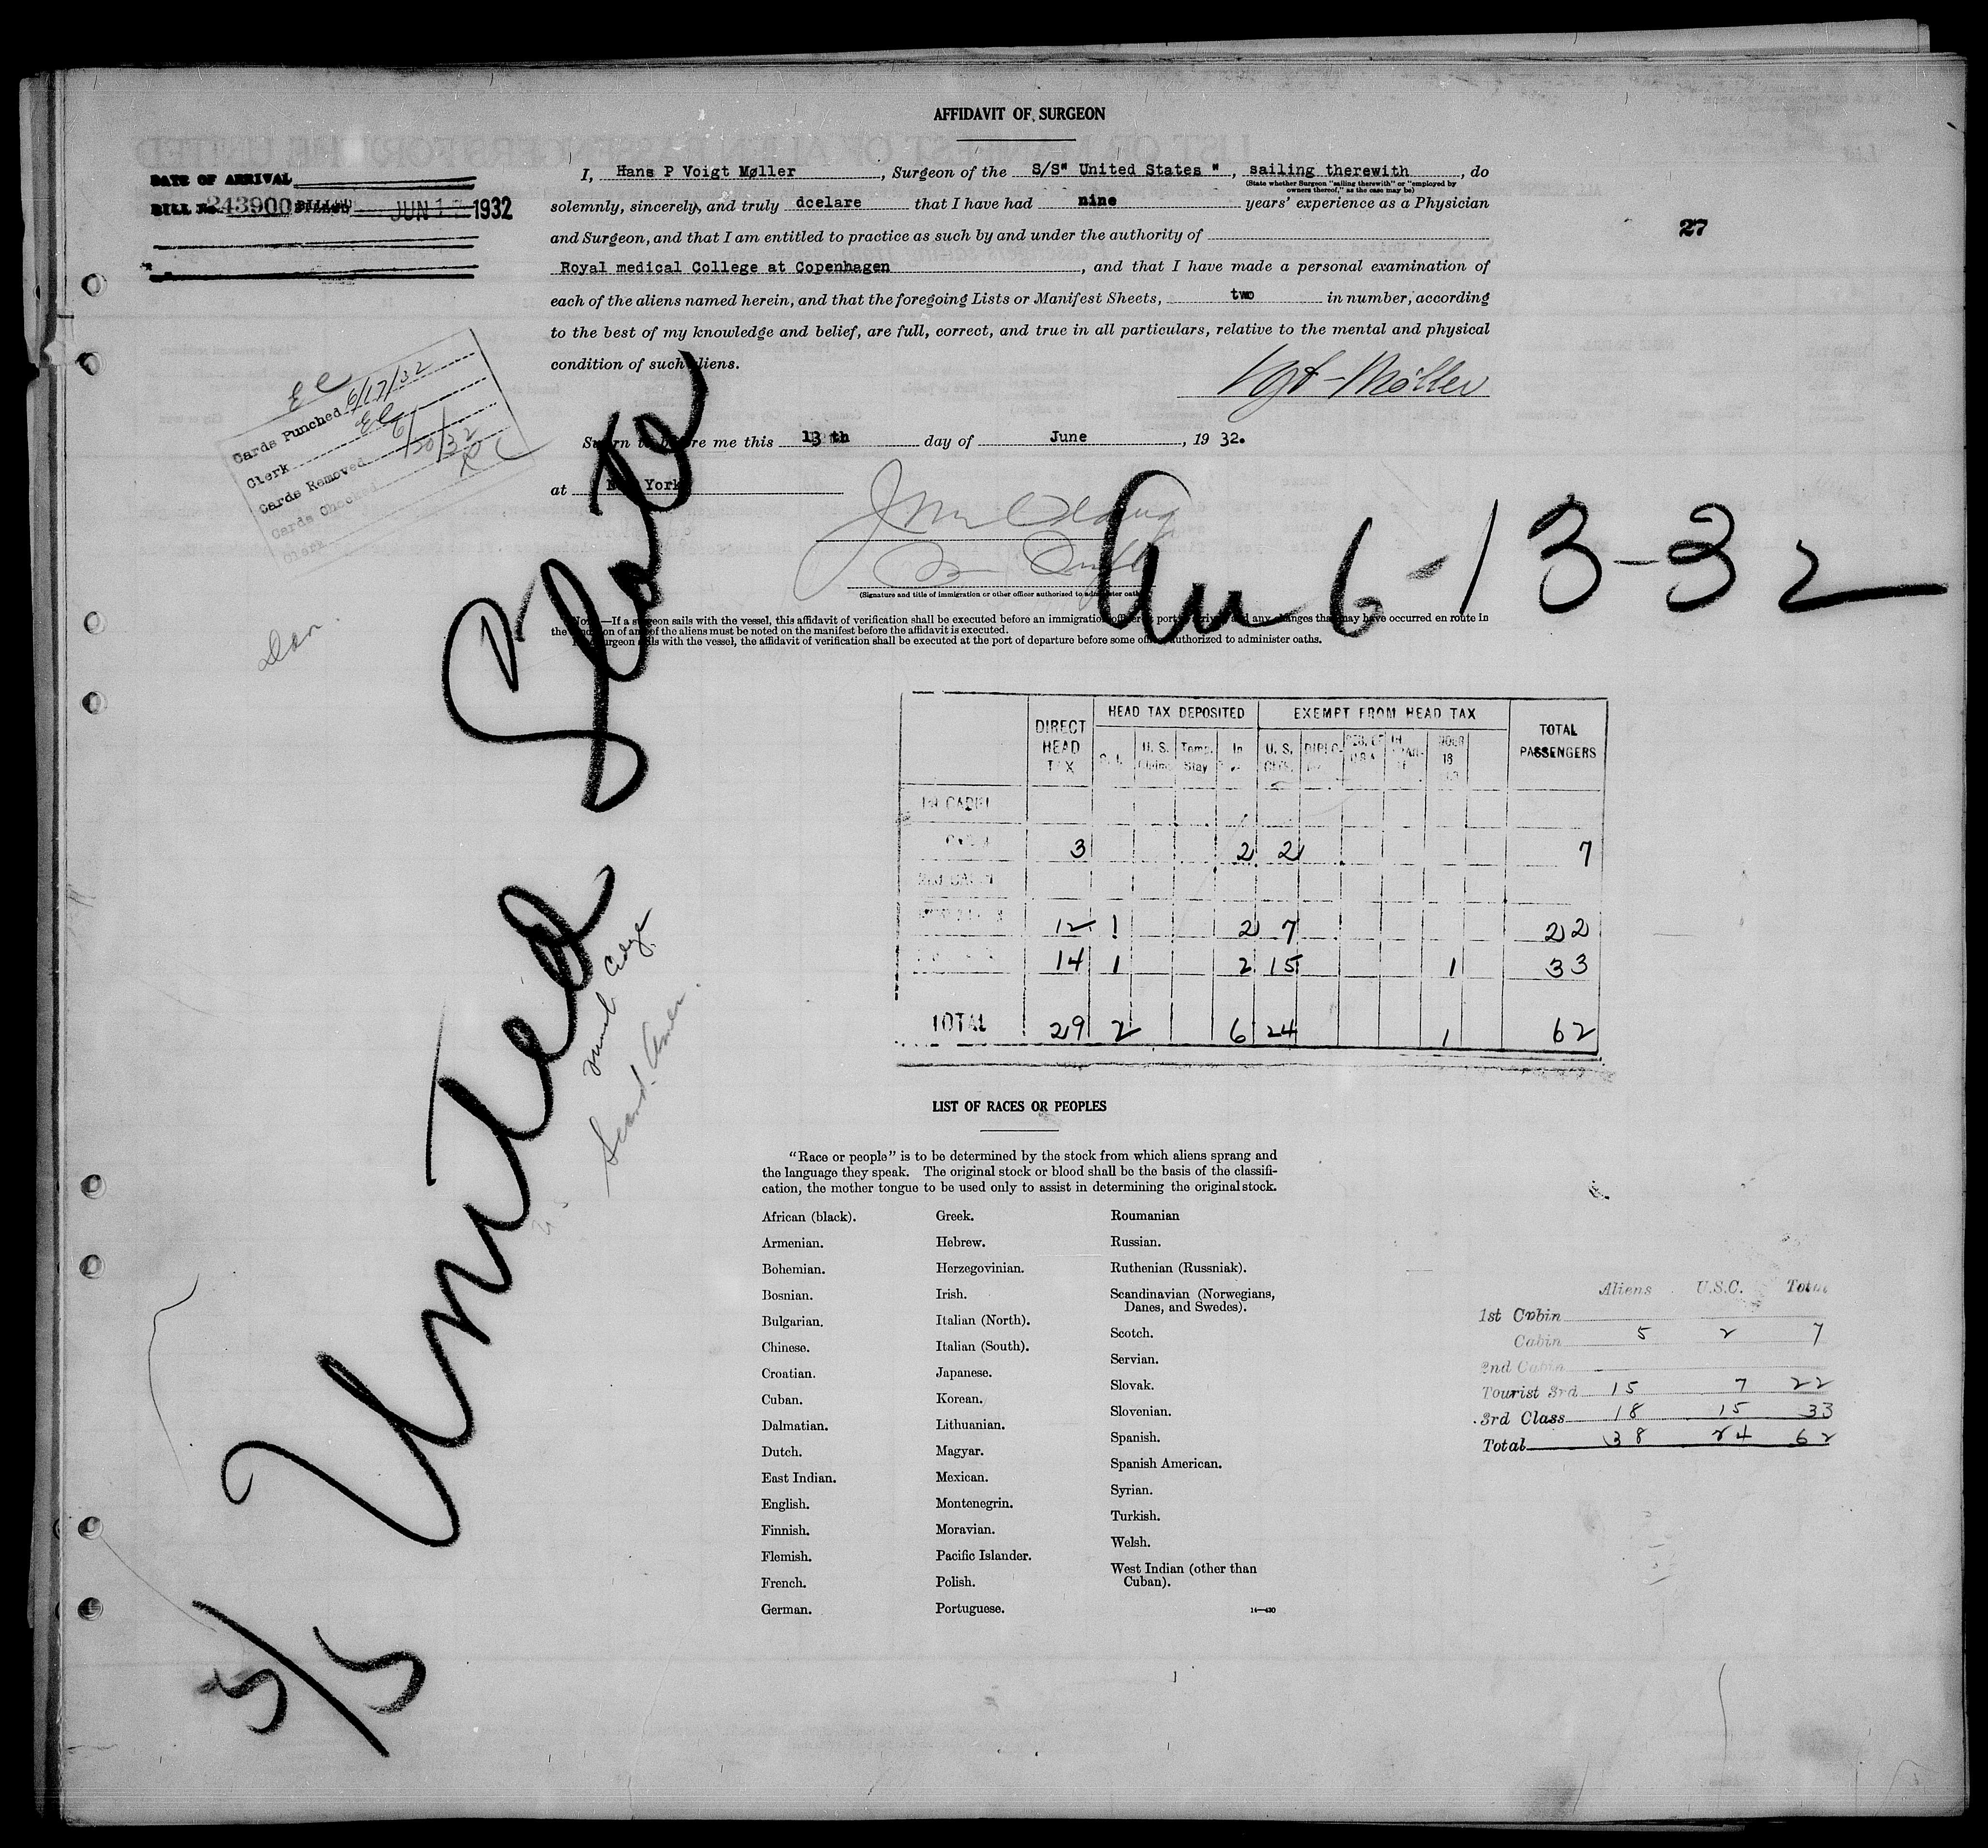 AFFIDAVIT OF SURGEON
DATE OF ARRIVAL
BILL No. 243900 BILLED JUN 17 1932
27
I, Hans P Voigt Møller, Surgeon of the S/S" United States ", sailing therewith, do
(State whether Surgeon "sailing therewith" or "employed by owners thereof," as the case may be)
solemnly, sincerely, and truly dcelare that I have had nine years' experience as a Physician
and Surgeon, and that I am entitled to practice as such by and under the authority of
Royal medical College at Copenhagen, and that I have made a personal examination of
each of the aliens named herein, and that the foregoing Lists or Manifest Sheets, two in number, according
to the best of my knowledge and belief, are full, correct, and true in all particulars, relative to the mental and physical
condition of such aliens.
Vgt-Møller
Sworn to before me this 13 th day of June, 19 32.
at New York
(Signature and title of immigration or other officer authorized to administer oath)
E C
Cards Punched 6/17/32
Clerk EC
Cards Removed 6/20/32
Cards Checked RC
Clerk
Dan.
United States
Arr 6-13-32
5/5
Scand. Amer.
NOTE.—If a surgeon sails with the vessel, this affidavit of verification shall be executed before an immigration officer at port of arrival and any changes that may have occurred en route in
the condition of any of the aliens must be noted on the manifest before the affidavit is executed.
surgeon sails with the vessel, the affidavit of verification shall be executed at the port of departure before some officer authorized to administer oaths.
DIRECT HEAD TAX HEAD TAX DEPOSITED EXEMPT FROM HEAD TAX TOTAL PASSENGERS
S. I. U. S. Claim Temp. Stay In U. S. CITS. DIPLO. RES. OF U.S.A. IN TRAN. UNDER 16
1st CABIN
CABIN 3 2 2 7
2nd CABIN
12 1 2 7 22
14 1 2 15 1 33
TOTAL 29 2 6 24 1 62
LIST OF RACES OR PEOPLES
"Race or people" is to be determined by the stock from which aliens sprang and
the language they speak. The original stock or blood shall be the basis of the classifi-
cation, the mother tongue to be used only to assist in determining the original stock.
African (black).
Armenian.
Bohemian.
Bosnian.
Bulgarian.
Chinese.
Croatian.
Cuban.
Dalmatian.
Dutch.
East Indian.
English.
Finnish.
Flemish.
French.
German.
Greek.
Hebrew.
Herzegovinian.
Irish.
Italian (North).
Italian (South).
Japanese.
Korean.
Lithuanian.
Magyar.
Mexican.
Montenegrin.
Moravian.
Pacific Islander.
Polish.
Portuguese.
Roumanian
Russian.
Ruthenian (Russniak).
Scandinavian (Norwegians,
Danes, and Swedes).
Scotch.
Servian.
Slovak.
Slovenian.
Spanish.
Spanish American.
Syrian.
Turkish.
Welsh.
West Indian (other than
Cuban).
14—430
Aliens U.S.C. Total
1st Cabin
Cabin 5 2 7
2nd Cabin
Tourist 3rd 15 7 22
3rd Class 18 15 33
Total 38 24 62